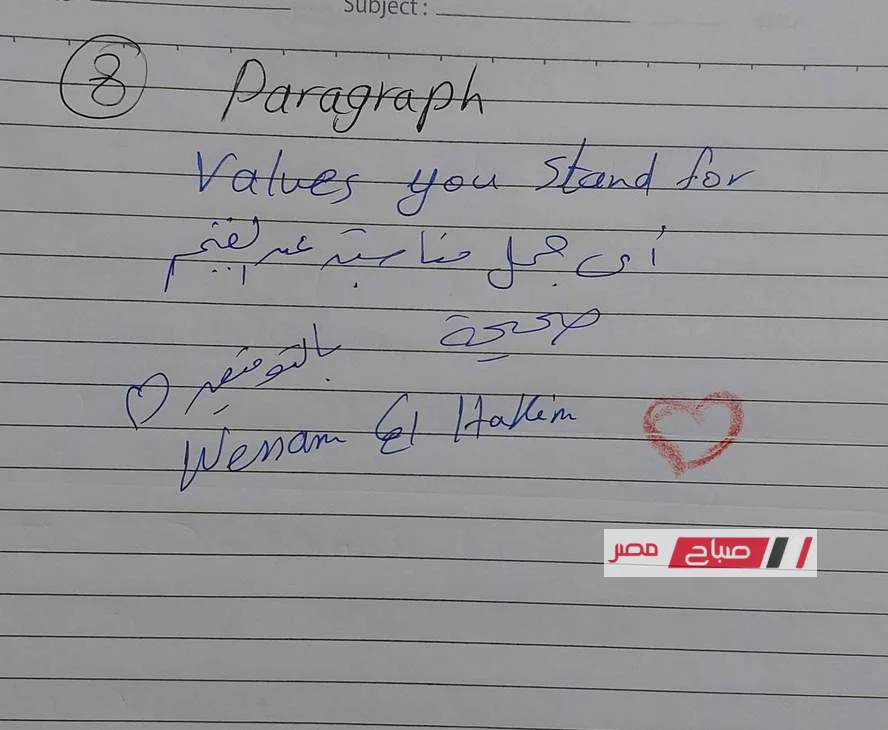 Subject :
8 Paragraph
Values you stand for
أى جمل مناسبة عن القيم
صحيحة
بالتوفيق
Wessam El Hakim
صباح مصر